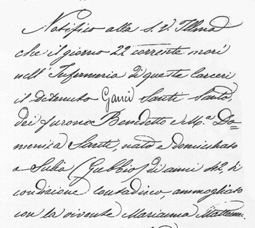 Notifico alla S. V. Ill.ma
che il giorno 22 corrente morì
nell'Infermeria di queste carceri
il detenuto Santi
Benedetto e Do=
menica Santi, nato e domiciliato
a (Gubbio) di anni di
condizione contadino, ammogliato
con la vivente Marianna